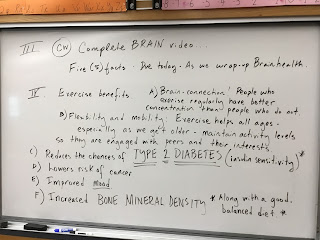 III CW Complete BRAIN video....
Five (5) facts. Due today. As we wrap-up Brain health.
IV Exercise benefits A) Brain-connection! People who
exercise regularly have better
concentration than people who do not.
B) Flexibility and mobility. Exercise helps all ages -
especially as we get older - maintain activity levels
so they are engaged with peers and their interests
C) Reduces the chances of TYPE 2 DIABETES (insulin sensitivity)*
D) Lowers risk of cancer
E) Improved mood
F) Increased BONE MINERAL DENSITY * Along with a good,
balanced diet *